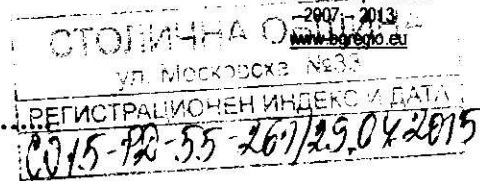 2007 - 2013
www.bgregio.eu
СТОЛИЧНА
ул. Московска №33
РЕГИСТРАЦИОНЕН ИНДЕКС И ДАТА
СО15-РД-55-267/29.04.2015